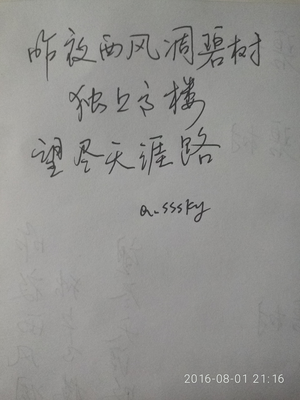 昨夜西风凋碧树
独上高楼
望尽天涯路
a_sssky
2016-08-01 21:16